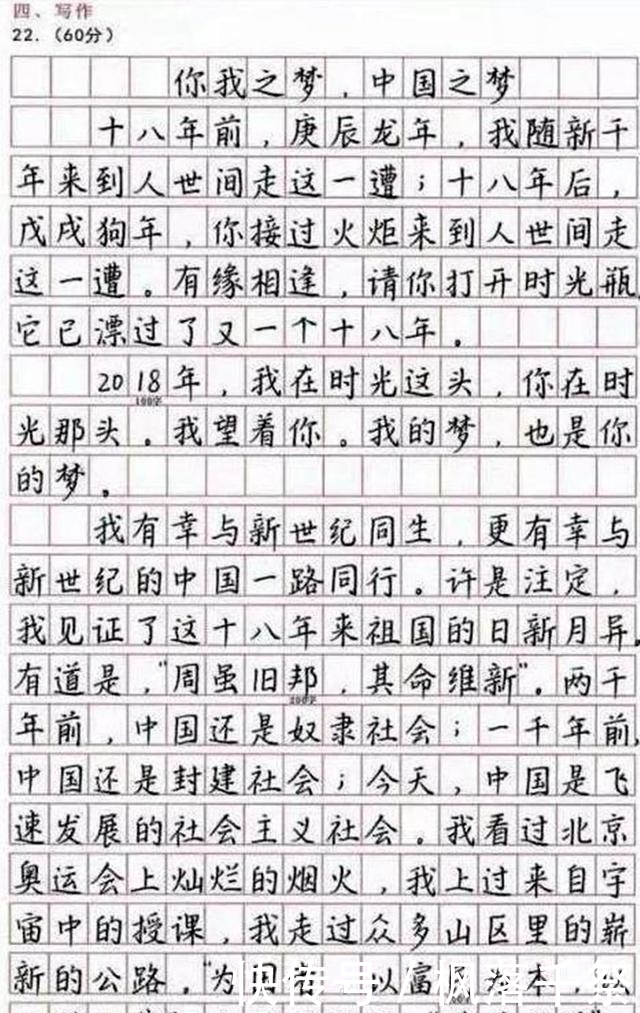 四、写作
22.（60分）
你我之梦，中国之梦
十八年前，庚辰龙年，我随新千
年来到人世间走这一遭；十八年后，
戊戌狗年，你接过火炬来到人世间走
这一遭。有缘相逢，请你打开时光瓶，
它已漂过了又一个十八年。
2018年，我在时光这头，你在时
100字
光那头。我望着你。我的梦，也是你
的梦。
我有幸与新世纪同生，更有幸与
新世纪的中国一路同行。许是注定，
我见证了这十八年来祖国的日新月异。
有道是，“周虽旧邦，其命维新”。两千
200字
年前，中国还是奴隶社会；一千年前，
中国还是封建社会；今天，中国是飞
速发展的社会主义社会。我看过北京
奥运会上灿烂的烟火，我上过来自宇
宙中的授课，我走过众多山区里的崭
新的公路。“为国 以富 本，